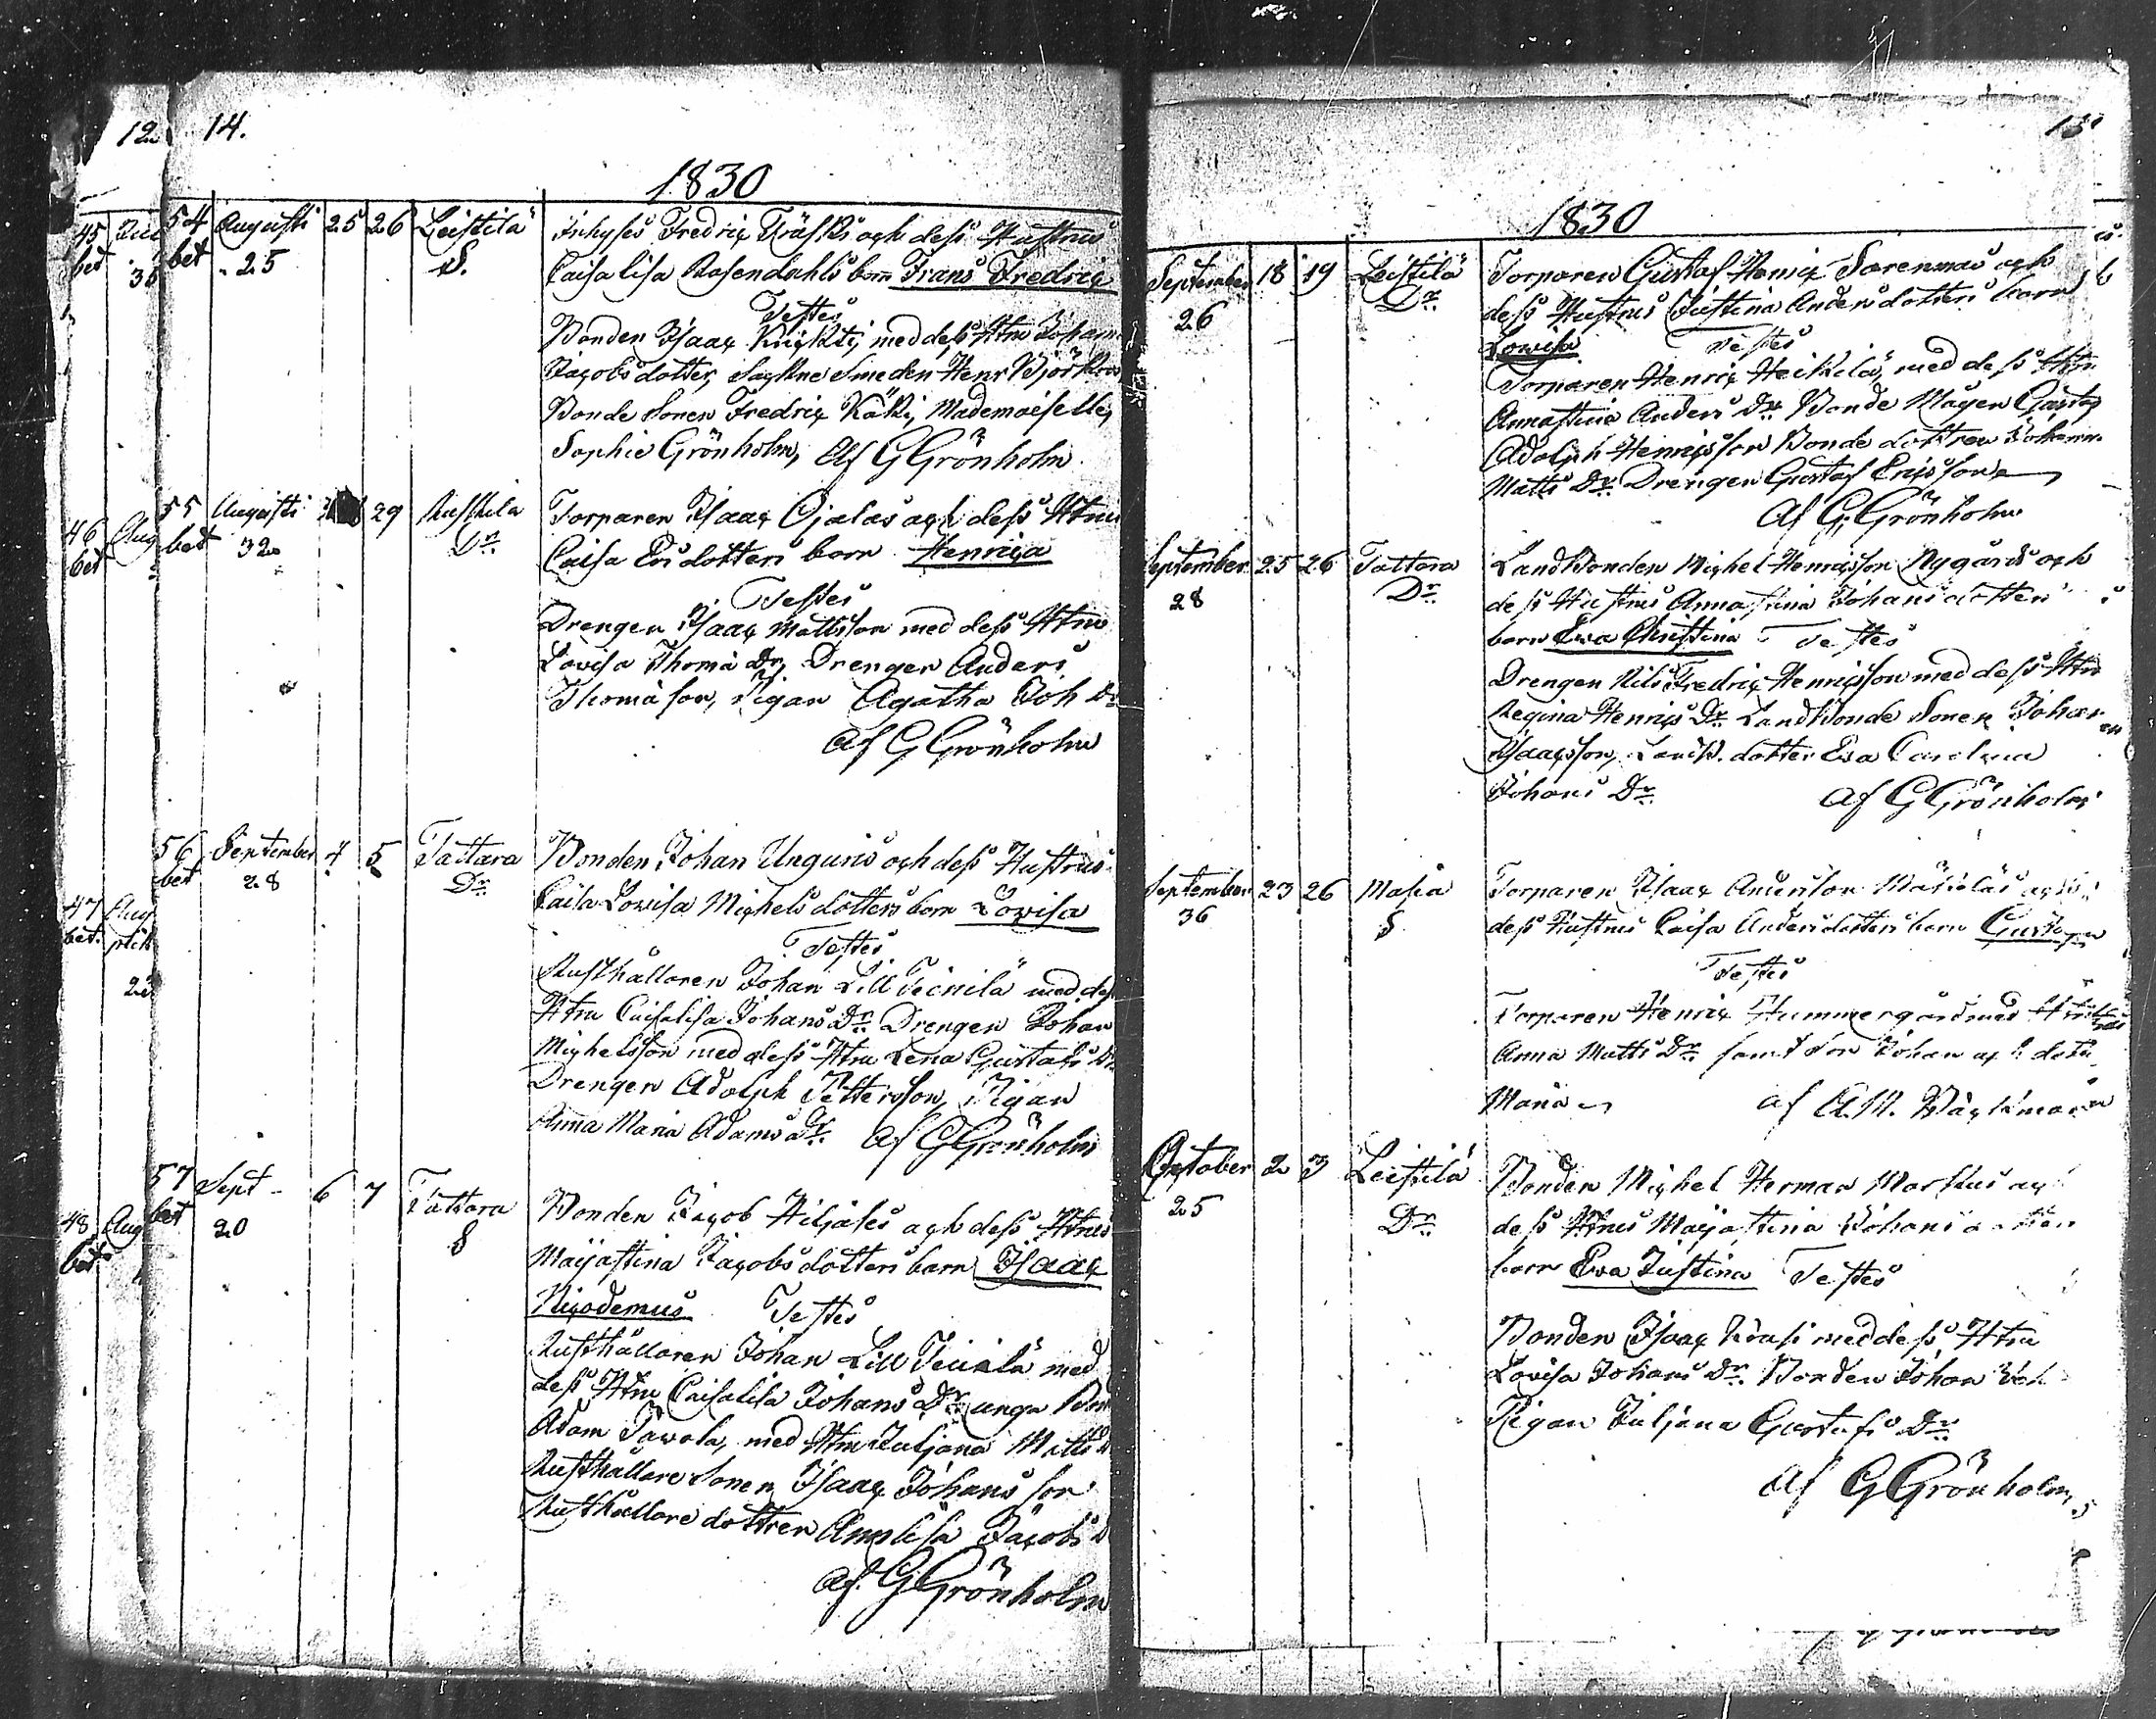 12
14.
1830
54 Augusti 25 26 Leistilä Inhyses Fredric Träsks och dess Hustrus
bet 25 S. Caisa Lisa Rosendahls barn Frans Fredric
Testes
Bonden Isaac Knickti, med dess Htru Johan
Jacobsdotter, Sockne Smeden Henr Björkroos
Bonde Sonen Fredric Käki, Mademoiselle,
Sophie Grönholm, Af G Grönholm
55 Augusti 29 Ruskila Torparen Isaac Ojalas och dess Htrus
bet 32 Dr Caisa Ersdotters barn Henrica
Testes
Drengen Isaac Mattsson med dess Htru
Lovisa Thoma Dr, Drengen Anders
Thomasson, Pigan Agatha Joh Dr
Af G Grönholm
56 September 4 5 Tattara Bonden Johan Unguris och dess Hustrus
bet 28 Dr Caisa Lovisa Michelsdotters barn Lovisa
Testes
Rusthållaren Johan Lill Teinilä med dess
Htru Caisalisa Johans Dr Drengen Johan
Michelsson med dess Htru Lena Gustafs Dr
Drengen Adolph Pettersson, Pigan
Anna Maria Adams Dr. Af G Grönholm
57 Sept 6 7 Tattara Bonden Jacob Hiljales och dess Htrus
bet 20 S Majastina Jacobsdotters barn Isaac
Nicodemus Testes
Rusthållaren Johan Lill Teinilä med
dess Htru Caisalisa Johans Dr unga Bon
Adam Tavola, med Htru Juljana Matts D
Rusthållare Sonen Isaac Johansson
Rusthållare dottren Annalisa Jacobs D
Af. G Grönholm
45 bet
46 Aug
bet
47 Aug
bet.
48 Aug
bet
15
1830
September 18 19 Leistilä Torparen Gustaf Henric Sorenmas och
26 Dr dess Hustrus Justina Andersdotters barn
Lowisa Testes
Torparen Henric Heikilä, med dess Htru
Annastina Anders Dr Bonde Mågen Gustaf
Adolph Henricsson Bonde dottren Johanna
Matts Dr Drengen Gustaf Ericsson
Af G. Grönholm
September 25 26 Tattara Landbonden Michel Henricsson Nygårds och
28 Dr dess Hustrus Annastina Johansdotters
barn Ewa Christina Testes
Drengen Nils Fredric Henricsson med dess Htru
Regina Henrics Dr Landbonde Sonen Johan
Isaacsson, Landb. dotter Eva Carolina
Johans Dr Af G Grönholm
September 23 26 Masia Torparen Isaac Andersson Mäkiläs och
36 S dess Hustrus Caisa Andersdotters barn Gustaf
Testes
Torparen Henric Hummergård med Hustrus
Anna Matts Dr samt Son Johan och dotter
Maria af A.M.
October 2 3 Leistilä Bonden Michel Herman Markus och
25 Dr dess Htrus Majastina Johans
barn Eva Justina Testes
Bonden Isaac med dess Htru
Lovisa Johans Dr. Bonden Johan
Pigan Juljana Gustafs Dr
Af G Grönholm